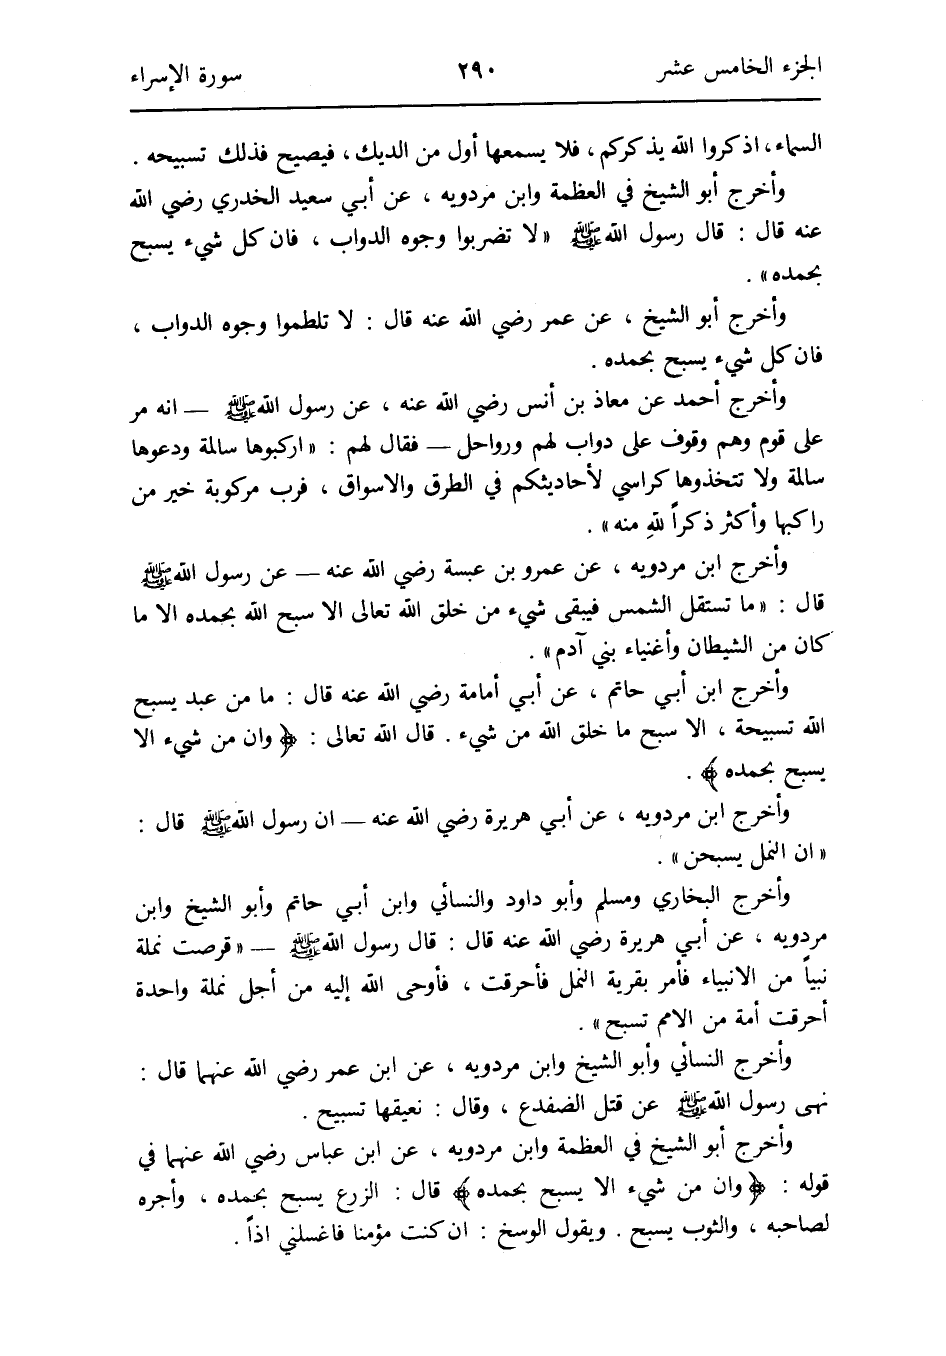 الجزء الخامس عشر ٢٩٠ سورة الإسراء
السماء، اذكروا الله يذكركم، فلا يسمعها أول من الديك، فيصيح فذلك تسبيحه .
وأخرج أبو الشيخ في العظمة وابن مردويه ، عن أبي سعيد الخدري رضي الله
عنه قال : قال رسول الله ﷺ «لا تضربوا وجوه الدواب ، فان كل شيء يسبح
بحمده» .
وأخرج أبو الشيخ ، عن عمر رضي الله عنه قال : لا تلطموا وجوه الدواب ،
فان كل شيء يسبح بحمده .
وأخرج أحمد عن معاذ بن أنس رضي الله عنه ، عن رسول الله ﷺ — انه مر
على قوم وهم وقوف على دواب لهم ورواحل — فقال لهم : «اركبوها سالمة ودعوها
سالمة ولا تتخذوها كراسي لأحاديثكم في الطرق والاسواق ، فرب مركوبة خير من
راكبها وأكثر ذكراً للهِ منه» .
وأخرج ابن مردويه ، عن عمرو بن عبسة رضي الله عنه — عن رسول الله ﷺ
قال : «ما تستقل الشمس فيبقى شيء من خلق الله تعالى الا سبح الله بحمده الا ما
كان من الشيطان وأغنياء بني آدم» .
وأخرج ابن أبي حاتم ، عن أبي أمامة رضي الله عنه قال : ما من عبد يسبح
الله تسبيحة ، الا سبح ما خلق الله من شيء . قال الله تعالى : ﴿ وان من شيء الا
يسبح بحمده ﴾ .
وأخرج ابن مردويه ، عن أبي هريرة رضي الله عنه — ان رسول الله ﷺ قال :
«ان النمل يسبحن» .
وأخرج البخاري ومسلم وأبو داود والنسائي وابن أبي حاتم وأبو الشيخ وابن
مردويه ، عن أبي هريرة رضي الله عنه قال : قال رسول الله ﷺ — «قرصت نملة
نبياً من الانبياء فأمر بقرية النمل فأحرقت ، فأوحى الله إليه من أجل نملة واحدة
أحرقت أمة من الامم تسبح» .
وأخرج النسائي وأبو الشيخ وابن مردويه ، عن ابن عمر رضي الله عنهما قال :
نهى رسول الله ﷺ عن قتل الضفدع ، وقال : نعيقها تسبيح .
وأخرج أبو الشيخ في العظمة وابن مردويه ، عن ابن عباس رضي الله عنهما في
قوله : ﴿ وان من شيء الا يسبح بحمده ﴾ قال : الزرع يسبح بحمده ، وأجره
لصاحبه ، والثوب يسبح . ويقول الوسخ : ان كنت مؤمنا فاغسلني اذاً .